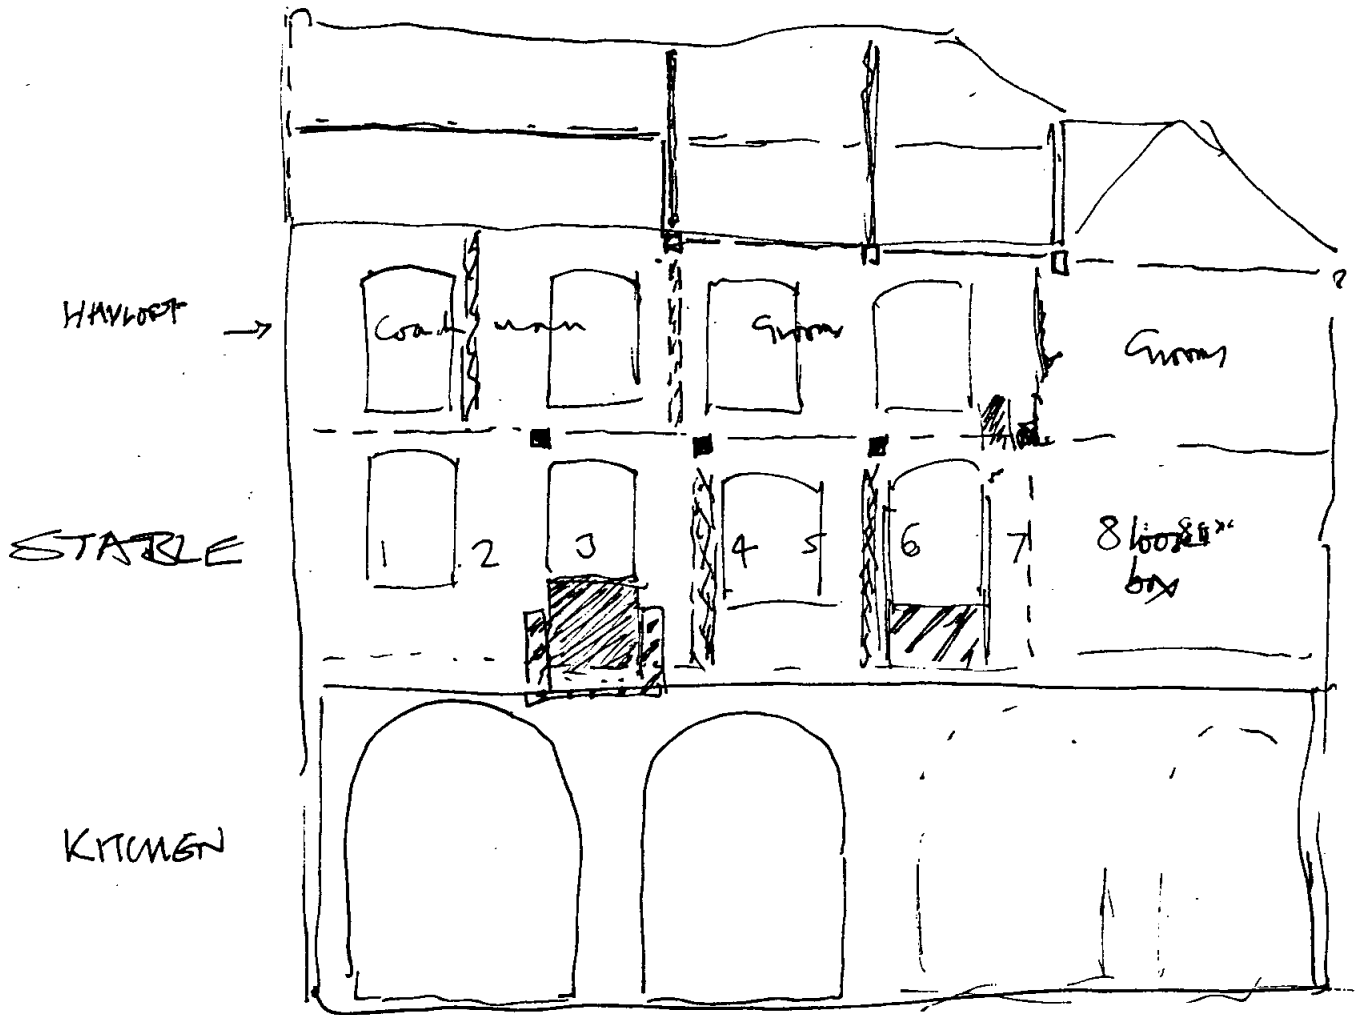 HAYLOFT →
Coach man
Groom
Grooms
STABLE
1 2 3 4 5 6 7 8 loose
box
KITCHEN